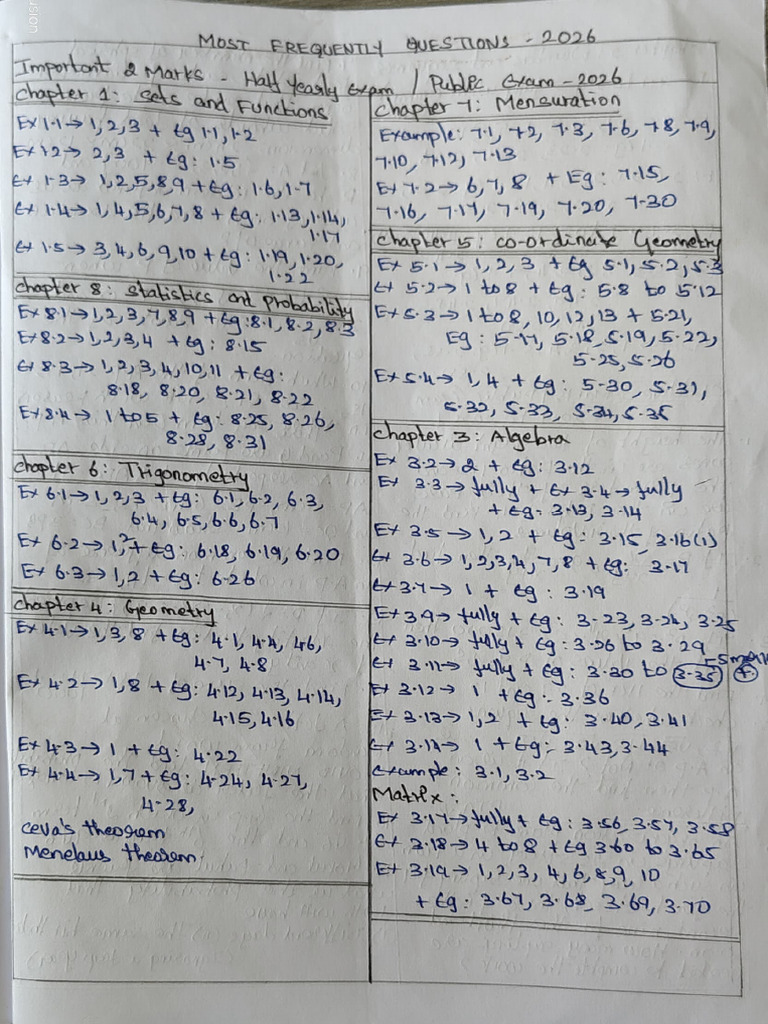 MOST FREQUENTLY QUESTIONS - 2026
Important 2 Marks - Half Yearly Exam / Public Exam - 2026
chapter 1: Sets and Functions
Ex 1.1 → 1,2,3 + Eg 1.1, 1.2
Ex 1.2 → 2,3 + Eg: 1.5
Ex 1.3 → 1,2,5,8,9 + Eg: 1.6, 1.7
Ex 1.4 → 1,4,5,6,7,8 + Eg: 1.13, 1.14,
1.17
Ex 1.5 → 3,4,6,9,10 + Eg: 1.19, 1.20,
1.22
chapter 8: Statistics and Probability
Ex 8.1 → 1,2,3,7,8,9 + Eg: 8.1, 8.2, 8.3
Ex 8.2 → 1,2,3,4 + Eg: 8.15
Ex 8.3 → 1,2,3,4,10,11 + Eg:
8.18, 8.20, 8.21, 8.22
Ex 8.4 → 1 to 5 + Eg: 8.25, 8.26,
8.28, 8.31
chapter 6: Trigonometry
Ex 6.1 → 1,2,3 + Eg: 6.1, 6.2, 6.3,
6.4, 6.5, 6.6, 6.7
Ex 6.2 → 1,2 + Eg: 6.18, 6.19, 6.20
Ex 6.3 → 1,2 + Eg: 6.26
chapter 4: Geometry
Ex 4.1 → 1,3,8 + Eg: 4.1, 4.4, 4.6,
4.7, 4.8
Ex 4.2 → 1,8 + Eg: 4.12, 4.13, 4.14,
4.15, 4.16
Ex 4.3 → 1 + Eg: 4.22
Ex 4.4 → 1,7 + Eg: 4.24, 4.27,
4.28,
Ceva's theorem
Menelaus theorem.
chapter 7: Mensuration
Example: 7.1, 7.2, 7.3, 7.6, 7.8, 7.9,
7.10, 7.12, 7.13
Ex 7.2 → 6,7,8 + Eg: 7.15,
7.16, 7.17, 7.19, 7.20, 7.30
chapter 5: Co-ordinate Geometry
Ex 5.1 → 1,2,3 + Eg 5.1, 5.2, 5.3
Ex 5.2 → 1 to 8 + Eg: 5.8 to 5.12
Ex 5.3 → 1 to 8, 10, 12, 13 + 5.21,
Eg: 5.17, 5.18, 5.19, 5.22,
5.25, 5.26
Ex 5.4 → 1,4 + Eg: 5.30, 5.31,
5.32, 5.33, 5.34, 5.35
chapter 3: Algebra
Ex 3.2 → 2 + Eg: 3.12
Ex 3.3 → fully + Ex 3.4 → fully
+ Eg: 3.13, 3.14
Ex 3.5 → 1,2 + Eg: 3.15, 3.16(i)
Ex 3.6 → 1,2,3,4,7,8 + Eg: 3.17
Ex 3.7 → 1 + Eg: 3.19
Ex 3.9 → fully + Eg: 3.23, 3.24, 3.25
Ex 3.10 → fully + Eg: 3.26 to 3.29
Ex 3.11 → fully + Eg: 3.30 to 3.35
Ex 3.12 → 1 + Eg: 3.36
Ex 3.13 → 1,2 + Eg: 3.40, 3.41
Ex 3.14 → 1 + Eg: 3.43, 3.44
Example: 3.1, 3.2
Matrix:
Ex 3.17 → fully + Eg: 3.56, 3.57, 3.58
Ex 3.18 → 4 to 8 + Eg 3.60 to 3.65
Ex 3.19 → 1,2,3, 4, 6, 8, 9, 10
+ Eg: 3.67, 3.68, 3.69, 3.70